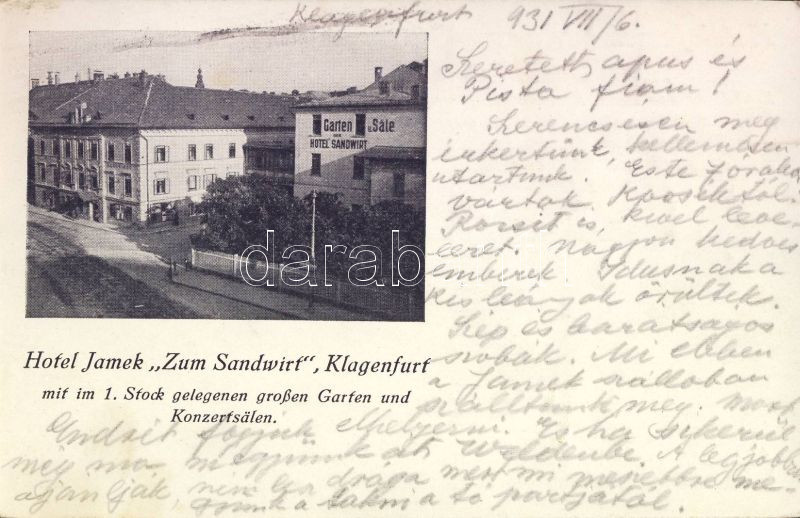 Klagenfurt 931 VII/6.
Szeretett apus és
Pista fiam!
Szerencsésen meg
érkeztünk, kellemesen
utaztunk. Este 7 órakor
vártak
is, kivel leve-
Nagyon kedves
emberek. Idusnak a
kis leányok örültek.
Szép és barátságos
szobák. Mi ebben
a Jamek szállóban
szálltunk meg. Most
Garten u. Säle
ZUM
HOTEL SANDWIRT
darab
Hotel Jamek „Zum Sandwirt“, Klagenfurt
mit im 1. Stock gelegenen großen Garten und
Konzertsälen.
fogjuk elhelyezni. És ha sikerül
még ma át Veldenbe. A legjobban
ajánlják, nem lesz drága mert mi messzebb me-
a tó partjától.